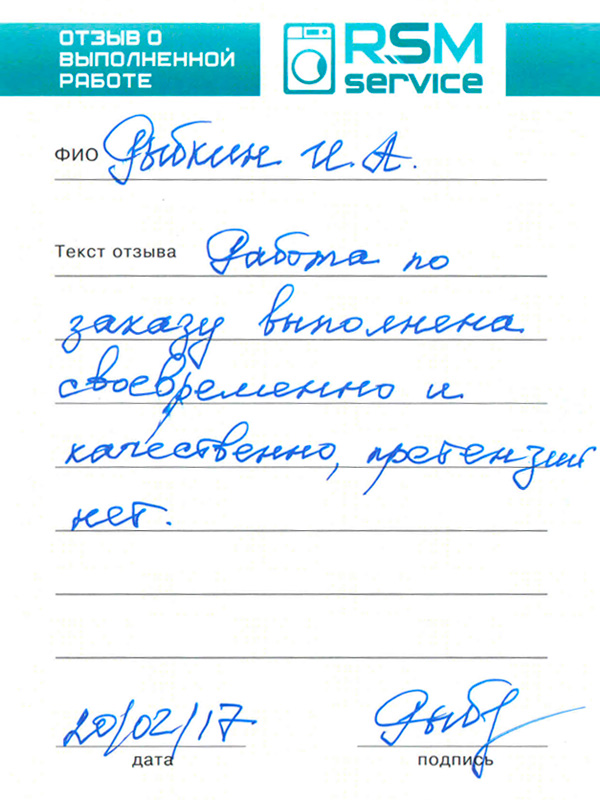 ОТЗЫВ О
ВЫПОЛНЕННОЙ
РАБОТЕ
RSM
service
ФИО Рыбкин И. А.
Текст отзыва Работа по
заказу выполнена
своевременно и
качественно, претензий
нет.
20/02/17 Рыб
дата подпись